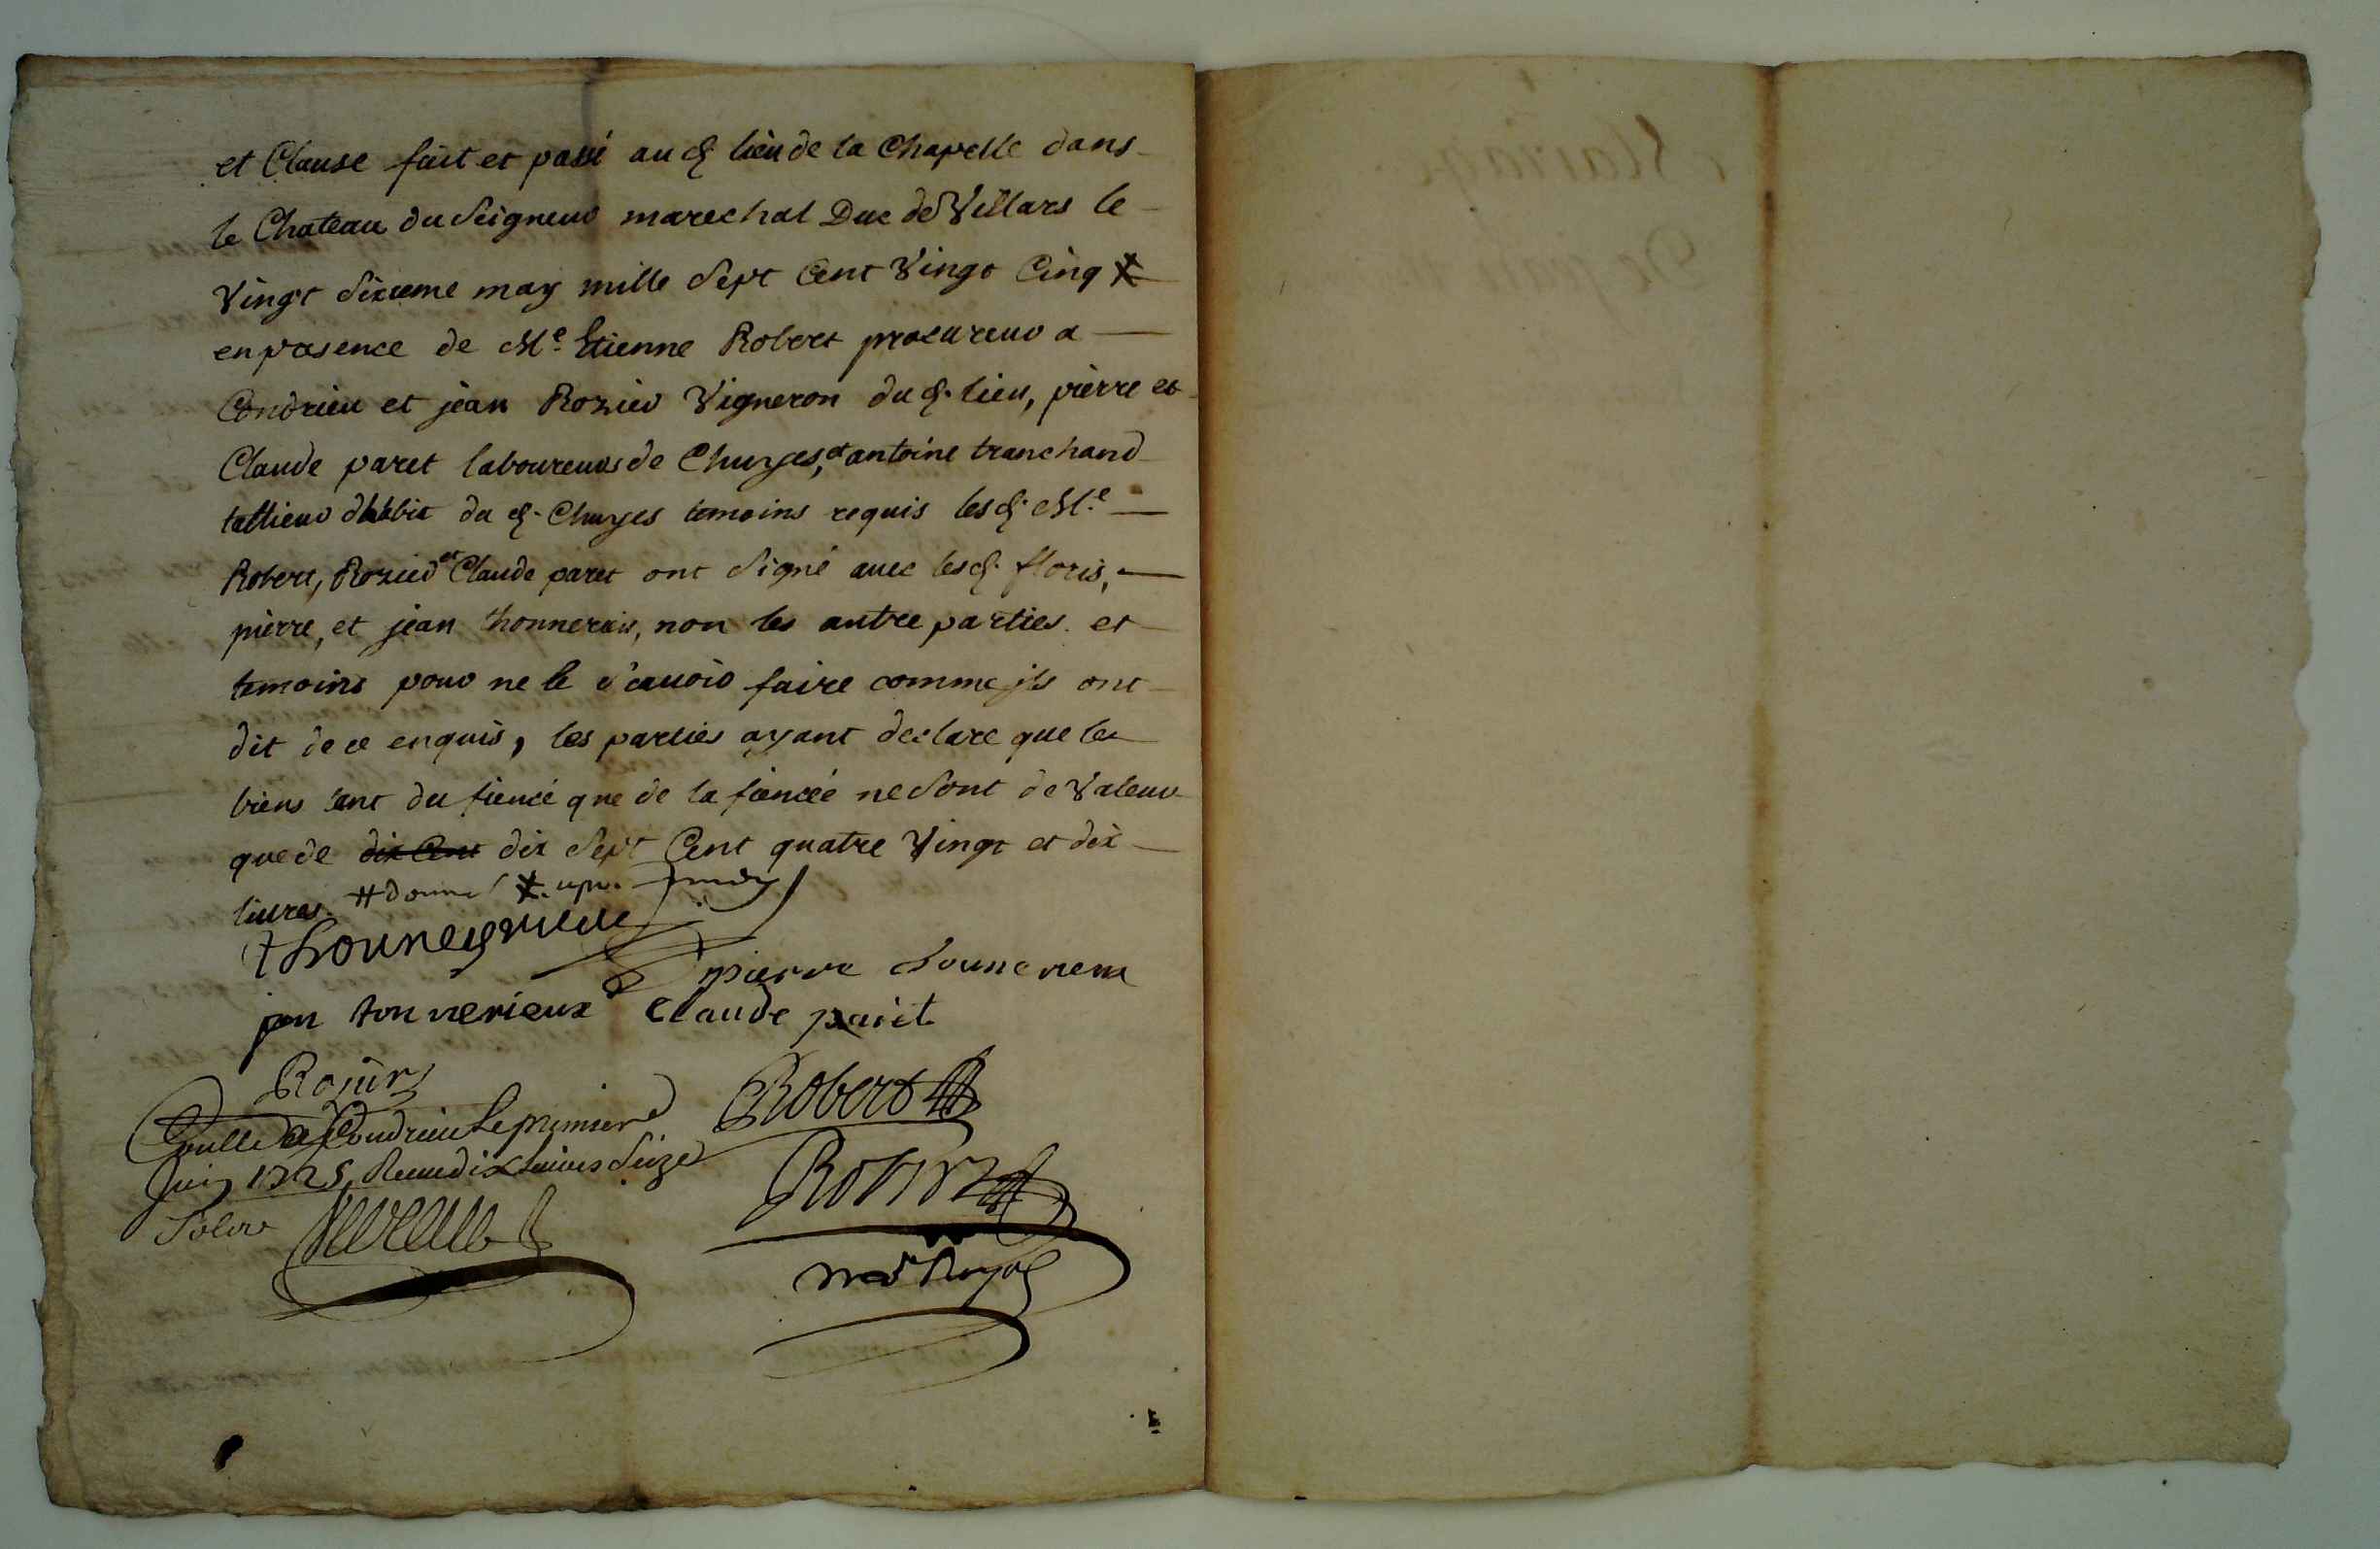 et Clause fait et passé aud. lieu de la Chapelle dans
le Chateau du Seigneur marechal Duc de Villars le
Vingt Sixieme may mille Sept Cent Vingt Cinq
en presence de Me. Etienne Robert procureur a
Condrieu et jean Rozier Vigneron dud. lieu, pierre et
Claude paret laboureurs de Chuyes, et antoine tranchand
tallieur dhabit dud. Chuyes temoins requis lesd. Me.
Robert, Rozier et Claude paret ont Signé avec lesd. floris,
pierre, et jean thonnerieu, non les autre parties et
temoins pour ne le sçavoir faire comme jls ont
dit de ce enquis, les parties ayant declare que les
biens tant du fiencé que de la fiencée ne Sont de Valeur
que de dix Cent dix Sept Cent quatre Vingt et dix
livres. # donne
thouneyrieue
pierre tounerieu
jan tonnerieux Claude paret
Rosier
Robert
Conllé a Condrieu Le premier
Juin 1725, Receu dix Livres Seize
Solz
Robert
No.re Royal
Mariage